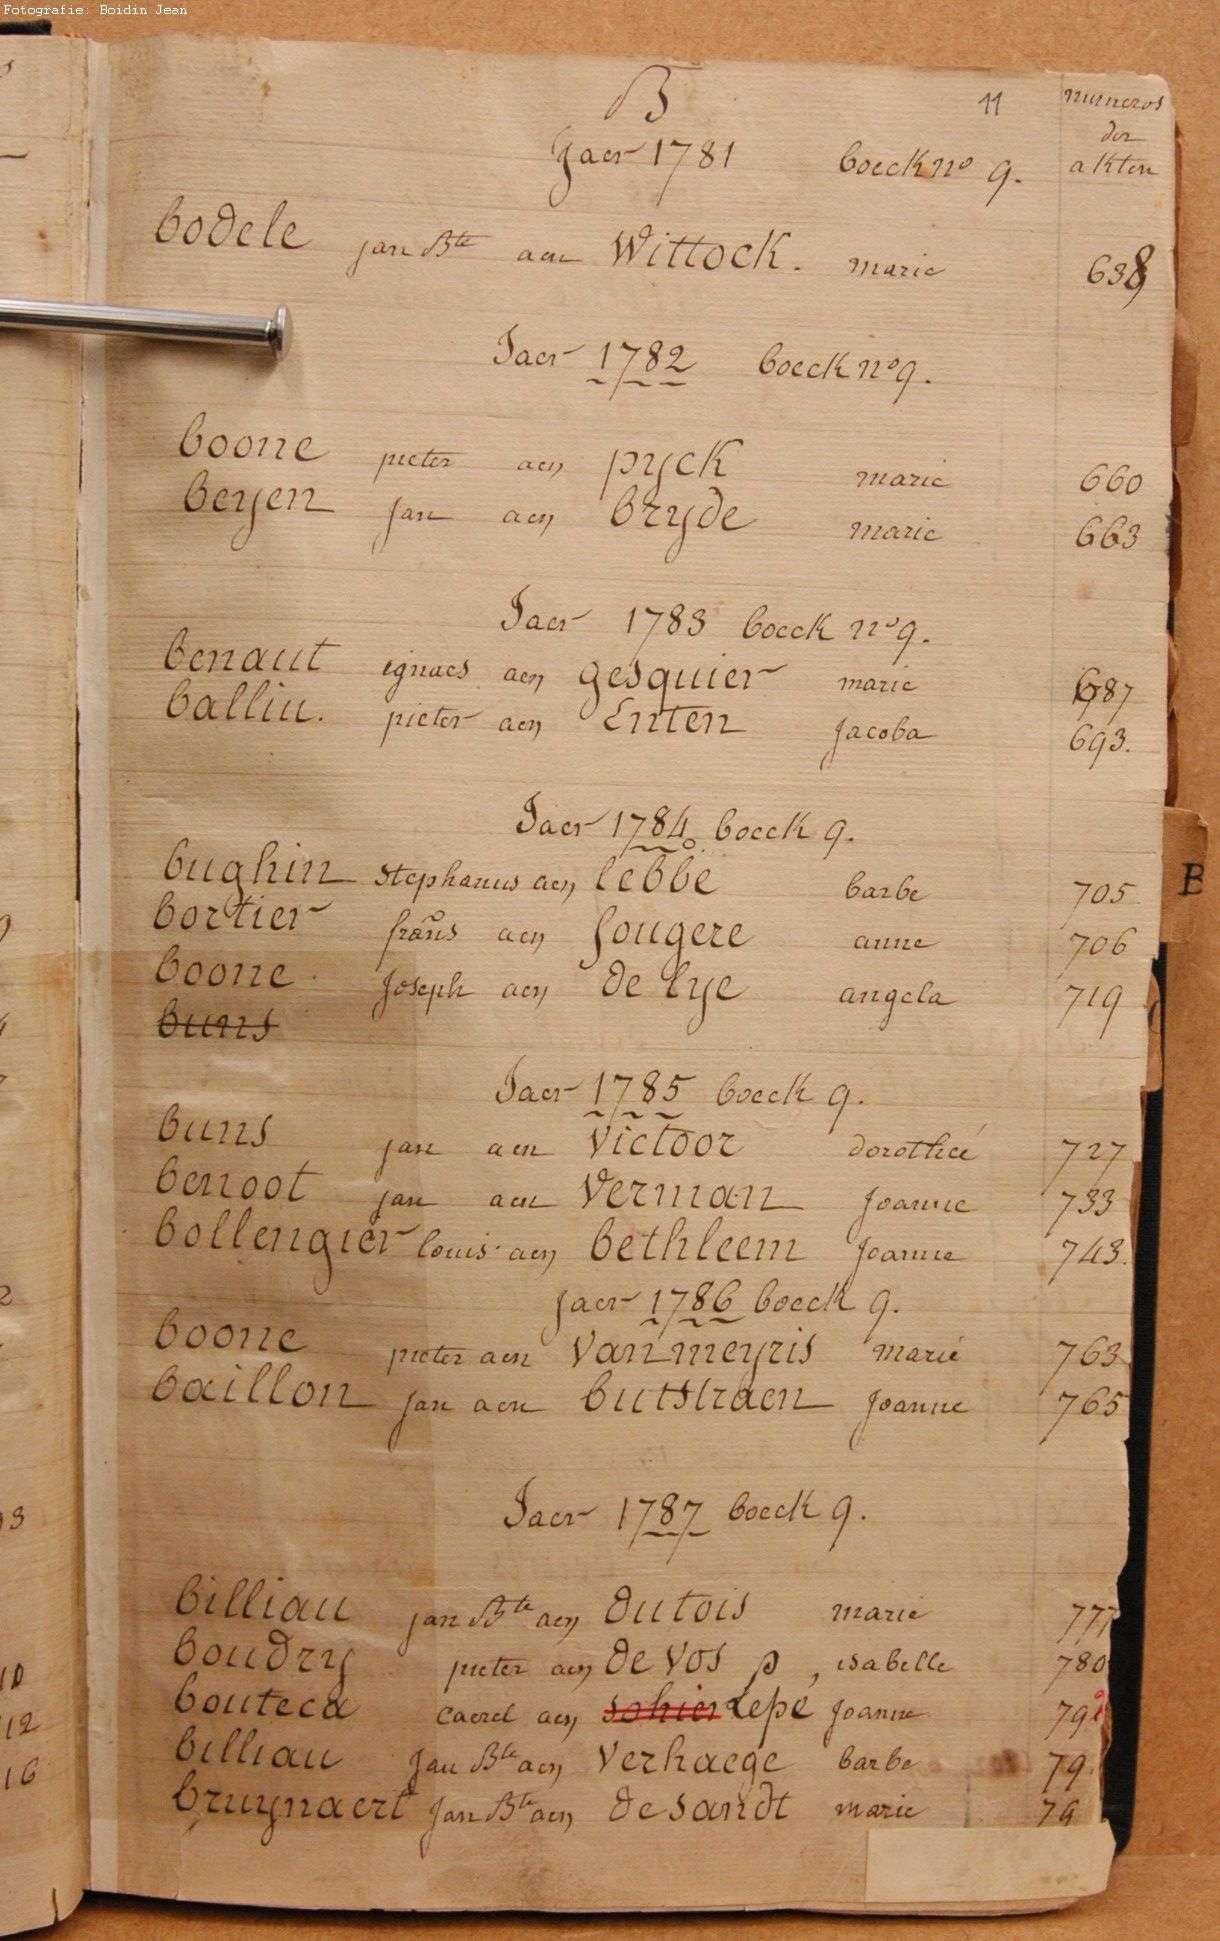 Fotografie: Boidin Jean
B 11 numeros
der
akten
Jaer 1781 boeck no 9.
bodele jan Bte aen Wittock. marie 638
Jaer 1782 boeck no 9.
boone pieter aen pyck marie 660
beyen jan aen bryde marie 663
Jaer 1783 boeck no 9.
benaut ignaes aen gesquier marie 687
balliu. pieter aen Enten Jacoba 693.
Jaer 1784 boeck 9.
bughin stephanus aen lebbe barbe 705
bortier frans aen fougere anne 706
boone Joseph aen de lye angela 719
buns
Jaer 1785 boeck 9.
buns jan aen victoor dorothée 727
benoot jan aen Verman Joanne 733
bollengier louis aen bethleem Joanne 743.
Jaer 1786 boeck 9.
boone pieter aen vanmeyris marie 763
baillon jan aen butstraen Joanne 765
Jaer 1787 boeck 9.
billiau jan Bte aen dutois marie 777
boudry pieter aen de vos p, isabelle 780
bouteca caerel aen sohier Lepé Joanne 79
billiau Jan Bte aen verhaege barbe 79
bruynaert Jan Bte aen desandt marie 79
B